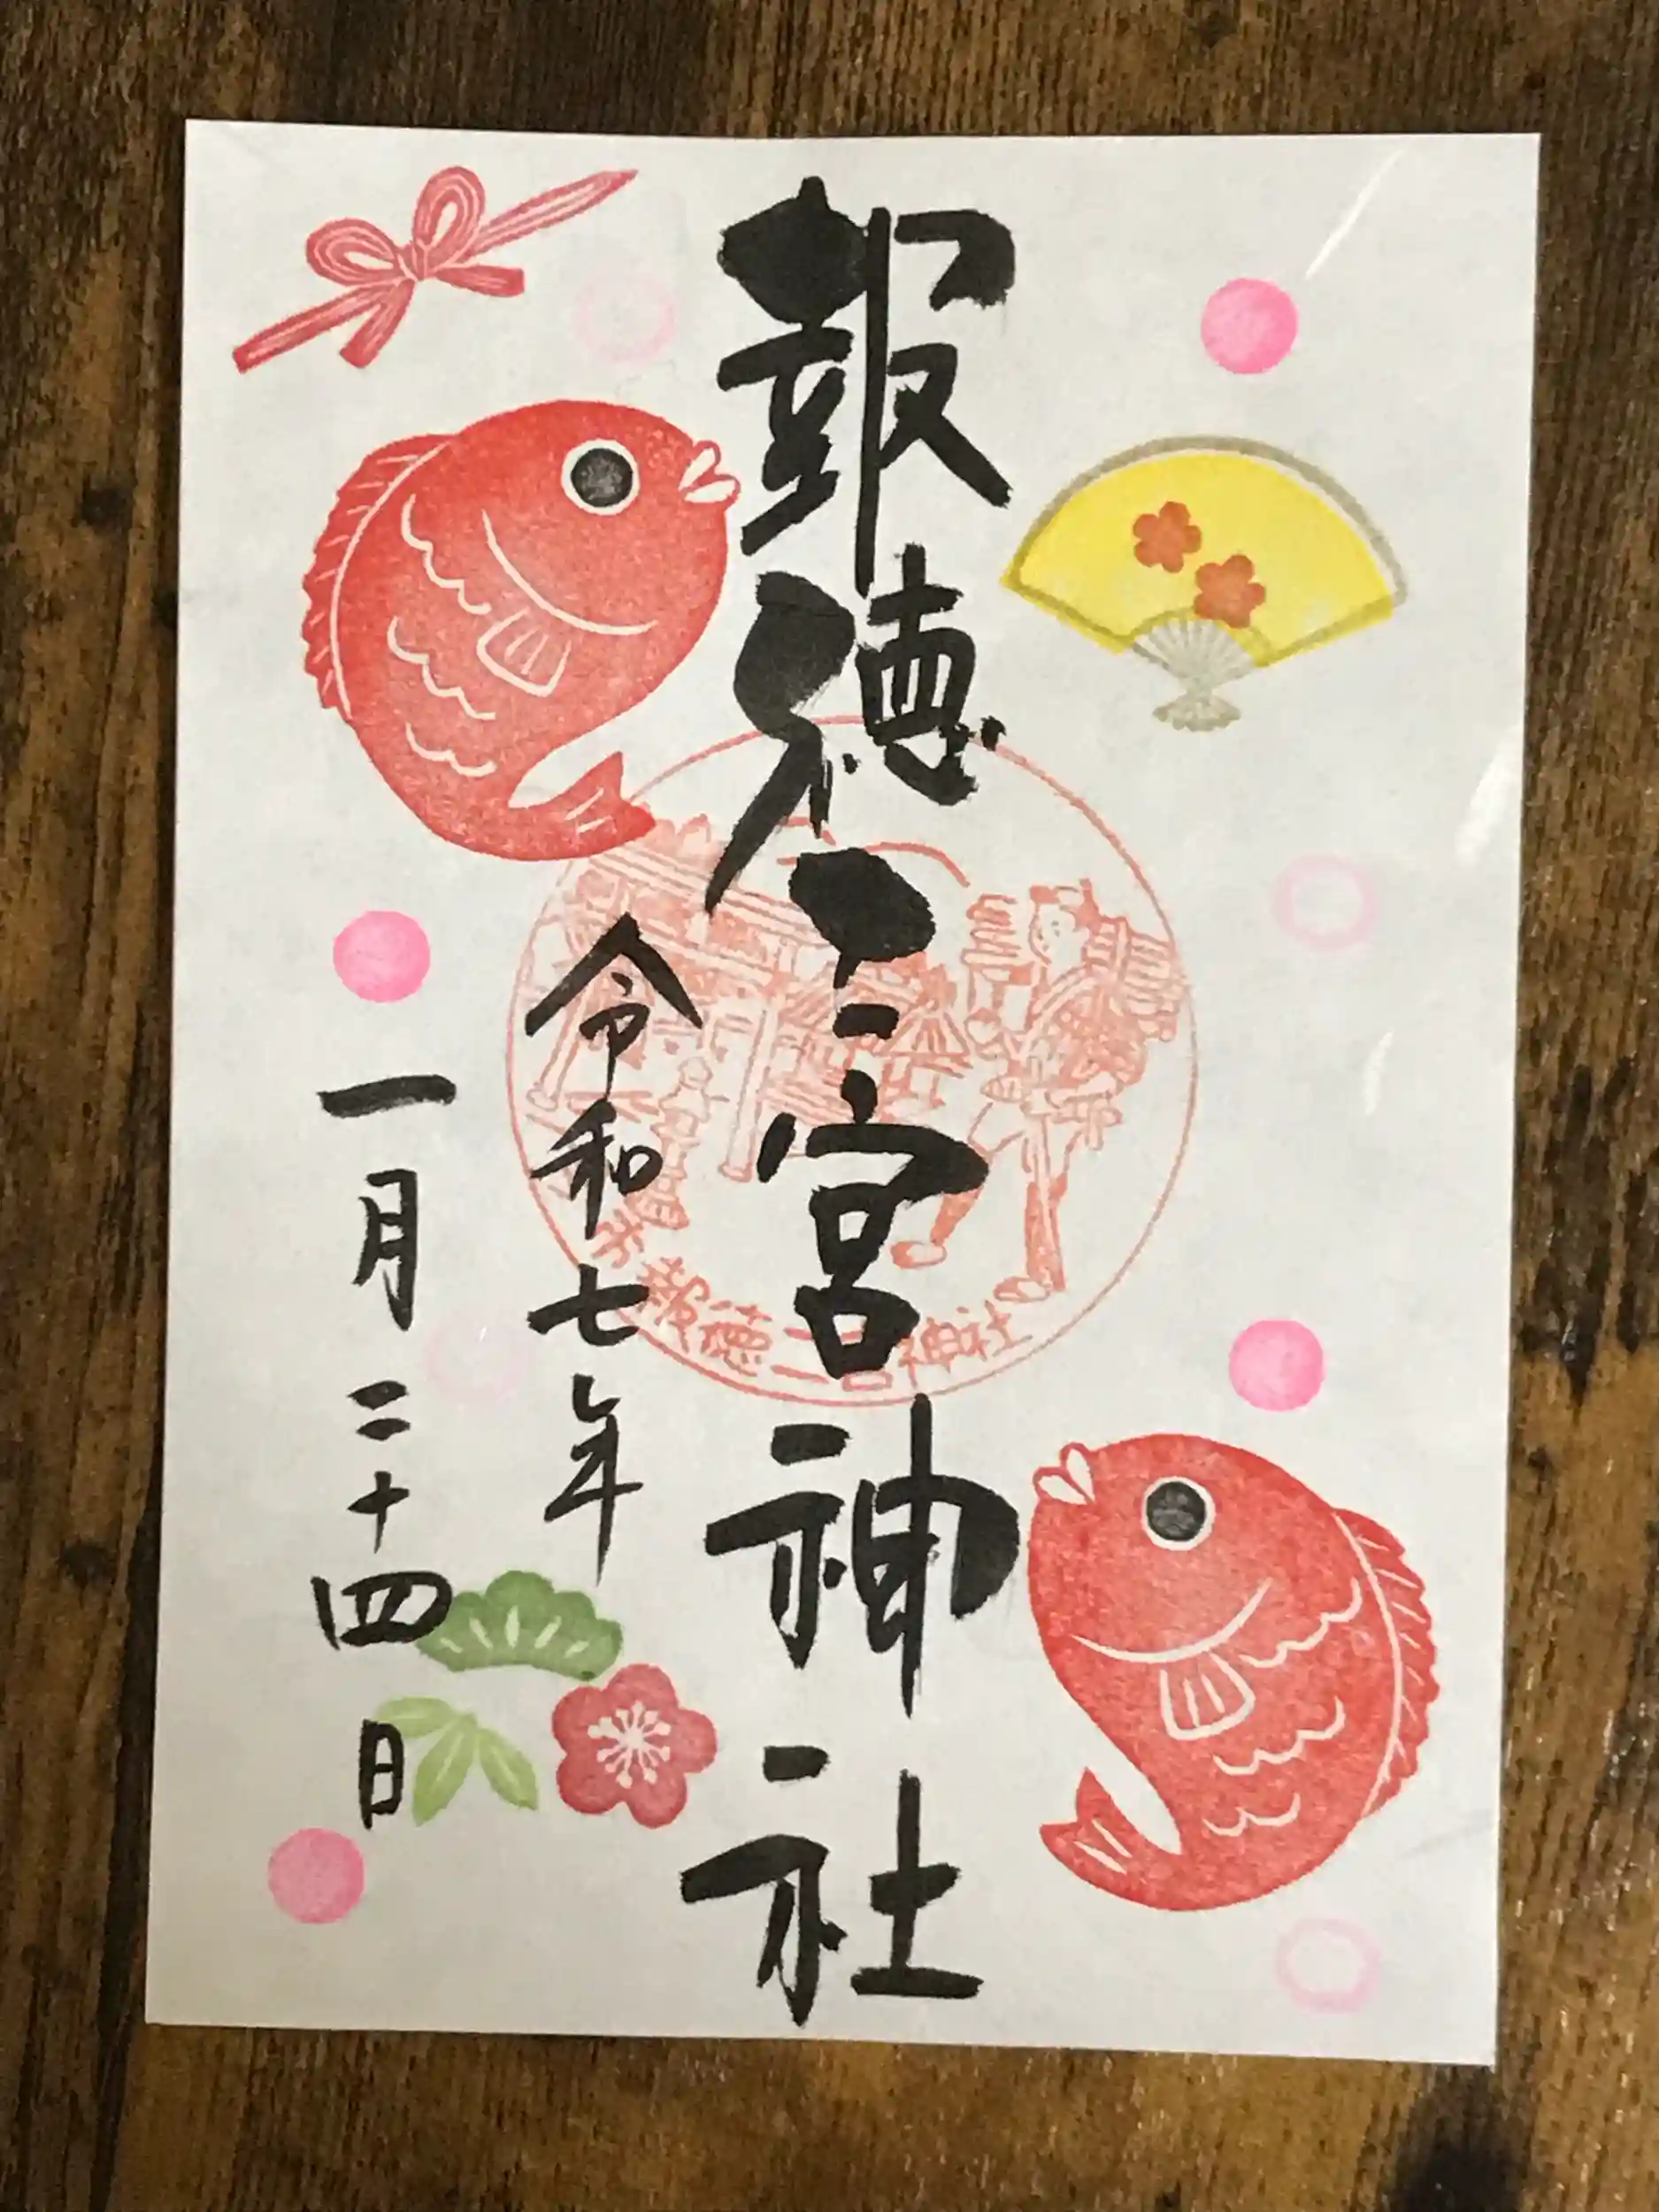 報徳二宮神社
令和七年
一月二十四日
報徳二宮神社